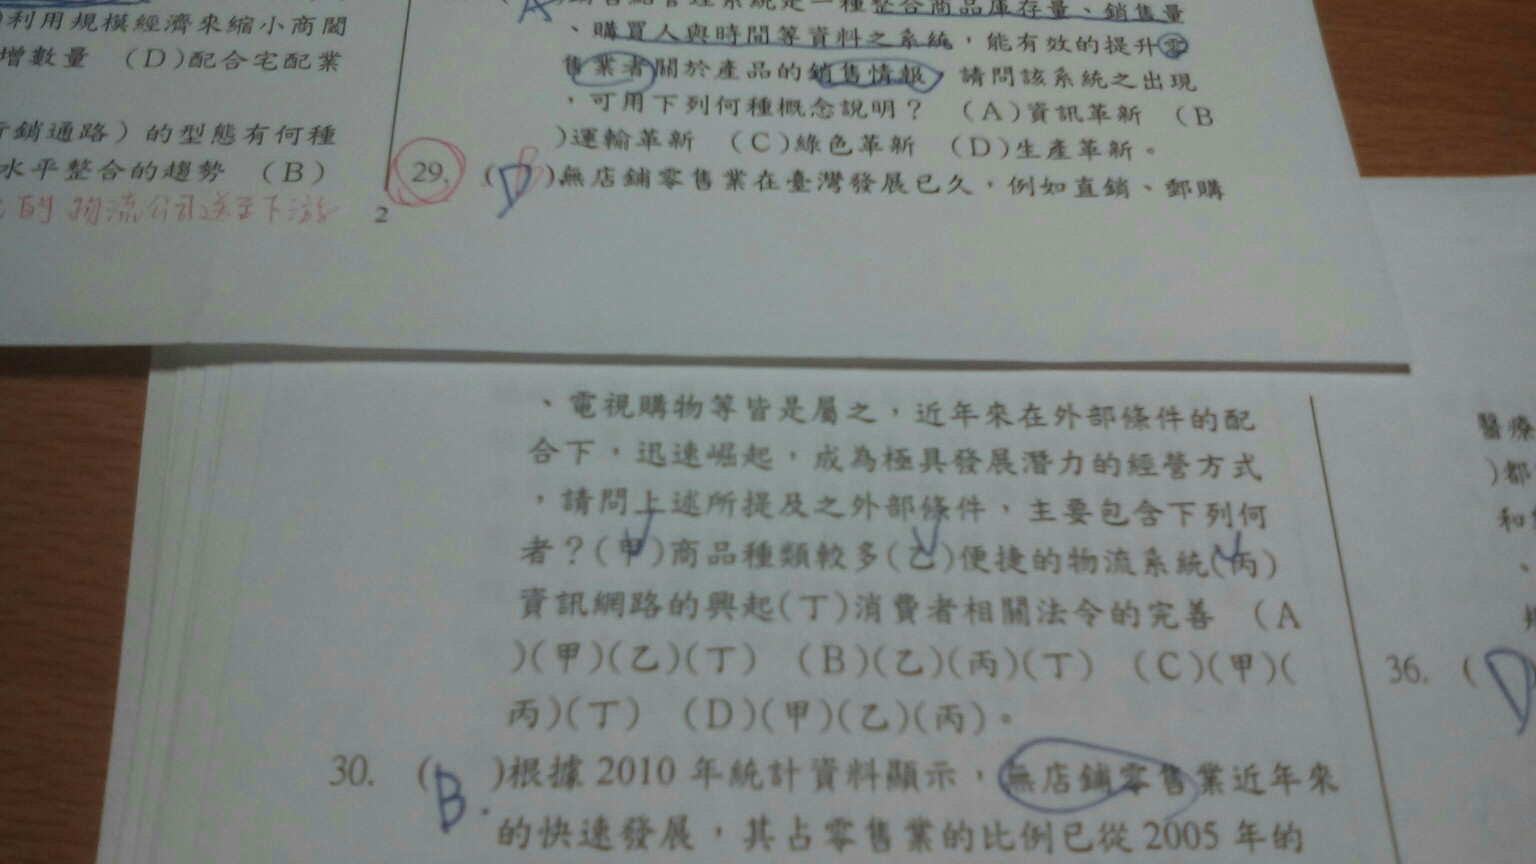 )利用規模經濟來縮小商閣
增數量 (D)配合宅配業
行銷通路)的型態有何種
水平整合的趨勢 (B)
的 物流公司送至下游
2
A
系統是一種整合商品庫存量、銷售量
、購買人與時間等資料之系統，能有效的提升零
售業者關於產品的銷售情報，請問該系統之出現
，可用下列何種概念說明？ (A)資訊革新 (B
)運輸革新 (C)綠色革新 (D)生產革新。
29. (D B)無店鋪零售業在臺灣發展已久，例如直銷、郵購
、電視購物等皆是屬之，近年來在外部條件的配
合下，迅速崛起，成為極具發展潛力的經營方式
，請問上述所提及之外部條件，主要包含下列何
者？(甲)商品種類較多(乙)便捷的物流系統(丙)
資訊網路的興起(丁)消費者相關法令的完善 (A
)(甲)(乙)(丁) (B)(乙)(丙)(丁) (C)(甲)(
丙)(丁) (D)(甲)(乙)(丙)。
30. (B)根據 2010 年統計資料顯示，無店鋪零售業近年來
的快速發展，其占零售業的比例已從 2005 年的
醫療
)都
和
、
36. (D